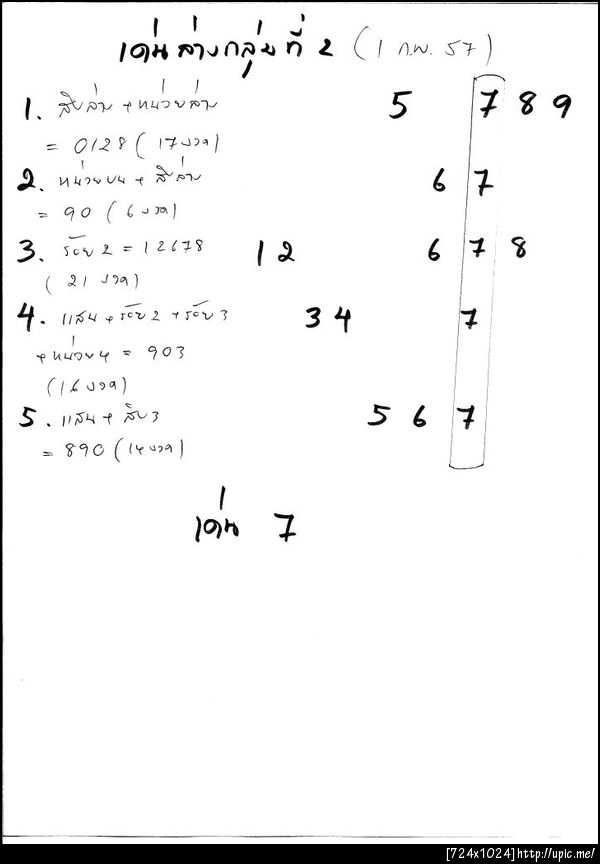 เด่นล่างกลุ่มที่ 2 (1 ก.พ. 57)
1. สิบล่าง + หน่วยล่าง 5 7 8 9
= 0128 (17งวด)
2. หน่วยบน + สิบล่าง 6 7
= 90 (6งวด)
3. ร้อย 2 = 12678 1 2 6 7 8
(21 งวด)
4. แสน + ร้อย2 + ร้อย3 3 4 7
+ หน่วย4 = 903
(16งวด)
5. แสน + สิบ3 5 6 7
= 890 (14งวด)
เด่น 7
[724x1024]http://upic.me/